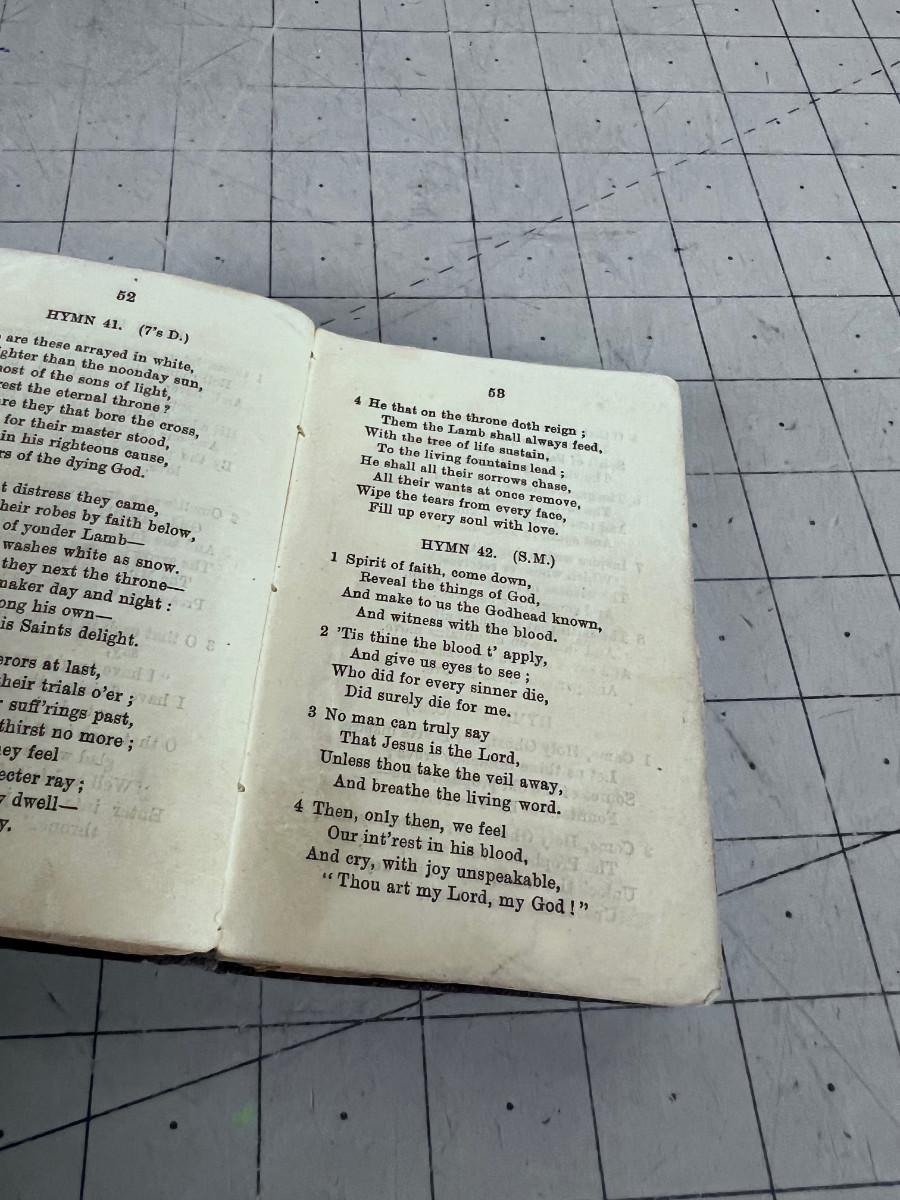 52
HYMN 41. (7's D.)
are these arrayed in white,
than the noonday sun,
of the sons of light,
the eternal throne?
they that bore the cross,
for their master stood,
in his righteous cause,
of the dying God.
distress they came,
robes by faith below,
of yonder Lamb—
washes white as snow.
they next the throne—
day and night:
his own—
Saints delight.
at last,
trials o'er;
suff'rings past,
thirst no more;
feel
ray;
dwell—
53
4 He that on the throne doth reign;
Them the Lamb shall always feed,
With the tree of life sustain,
To the living fountains lead;
He shall all their sorrows chase,
All their wants at once remove,
Wipe the tears from every face,
Fill up every soul with love.
HYMN 42. (S.M.)
1 Spirit of faith, come down,
Reveal the things of God,
And make to us the Godhead known,
And witness with the blood.
2 'Tis thine the blood t' apply,
And give us eyes to see;
Who did for every sinner die,
Did surely die for me.
3 No man can truly say
That Jesus is the Lord,
Unless thou take the veil away,
And breathe the living word.
4 Then, only then, we feel
Our int'rest in his blood,
And cry, with joy unspeakable,
"Thou art my Lord, my God!"